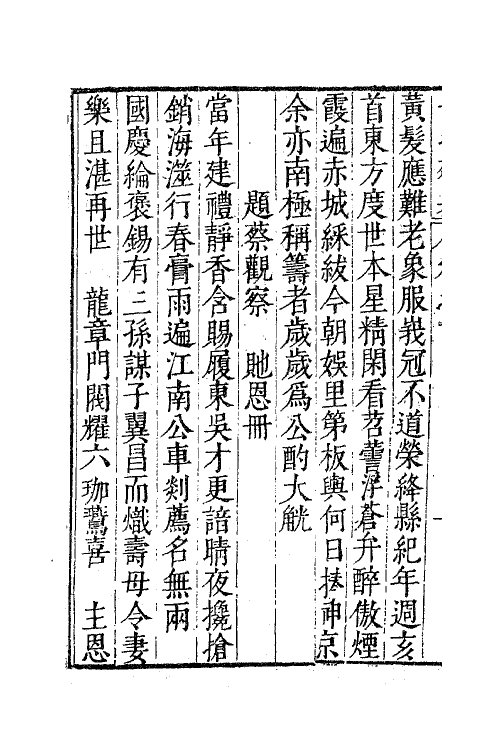 黃髮應難老象服峩冠不道榮絳縣紀年週亥
首東方度世本星精閑看苕䔲浮蒼弁醉傲煙
霞遍赤城綵紱今朝娛里第板輿何日捧神京
余亦南極稱籌者歲歲爲公酌大觥
題蔡觀察　貤恩冊
當年建禮靜香含賜履東吳才更諳晴夜攙搶
銷海澨行春膏雨遍江南公車剡薦名無兩
國慶綸褒錫有三孫謀子翼昌而熾壽母令妻
樂且湛再世　龍章門閥耀六珈驚喜　主恩